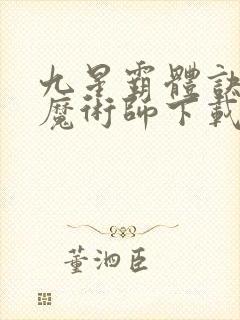 九星霸體訣
魔術師下載
董泗臣